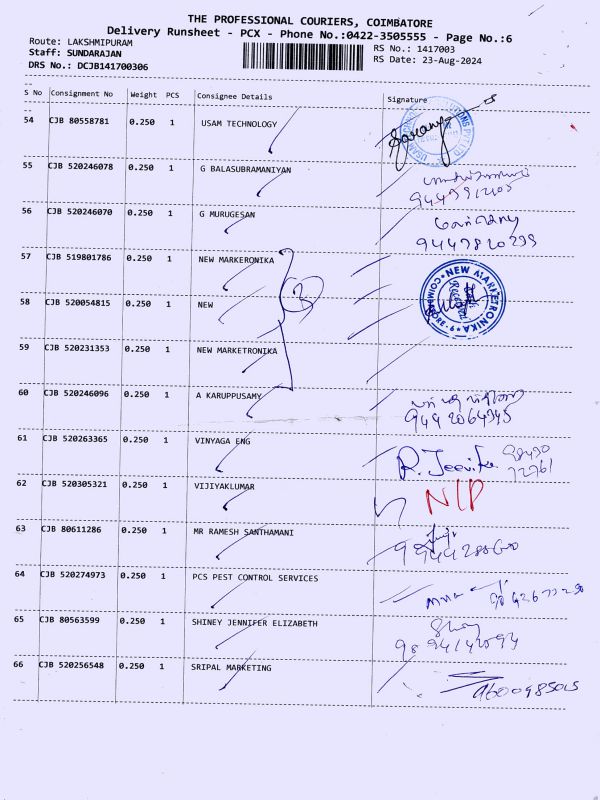 THE PROFESSIONAL COURIERS, COIMBATORE
Delivery Runsheet - PCX - Phone No.:0422-3505555 - Page No.:6
Route: LAKSHMIPURAM
RS No.: 1417003
Staff: SUNDARAJAN
RS Date: 23-Aug-2024
DRS No.: DCJB141700306
S No Consignment No Weight PCS Consignee Details Signature
54 CJB 80558781 0.250 1 USAM TECHNOLOGY
55 CJB 520246078 0.250 1 G BALASUBRAMANIYAN
56 CJB 520246070 0.250 1 G MURUGESAN
9447820299
57 CJB 519801786 0.250 1 NEW MARKERONIKA
NEW MARKETRONIKA COIMBATORE-9
58 CJB 520054815 0.250 1 NEW
3
59 CJB 520231353 0.250 1 NEW MARKETRONIKA
60 CJB 520246096 0.250 1 A KARUPPUSAMY
61 CJB 520263365 0.250 1 VINYAGA ENG
R. Jeevitha
62 CJB 520305321 0.250 1 VIJIYAKLUMAR
N/P
63 CJB 80611286 0.250 1 MR RAMESH SANTHAMANI
64 CJB 520274973 0.250 1 PCS PEST CONTROL SERVICES
65 CJB 80563599 0.250 1 SHINEY JENNIFER ELIZABETH
9894142894
66 CJB 520256548 0.250 1 SRIPAL MARKETING
9600985015